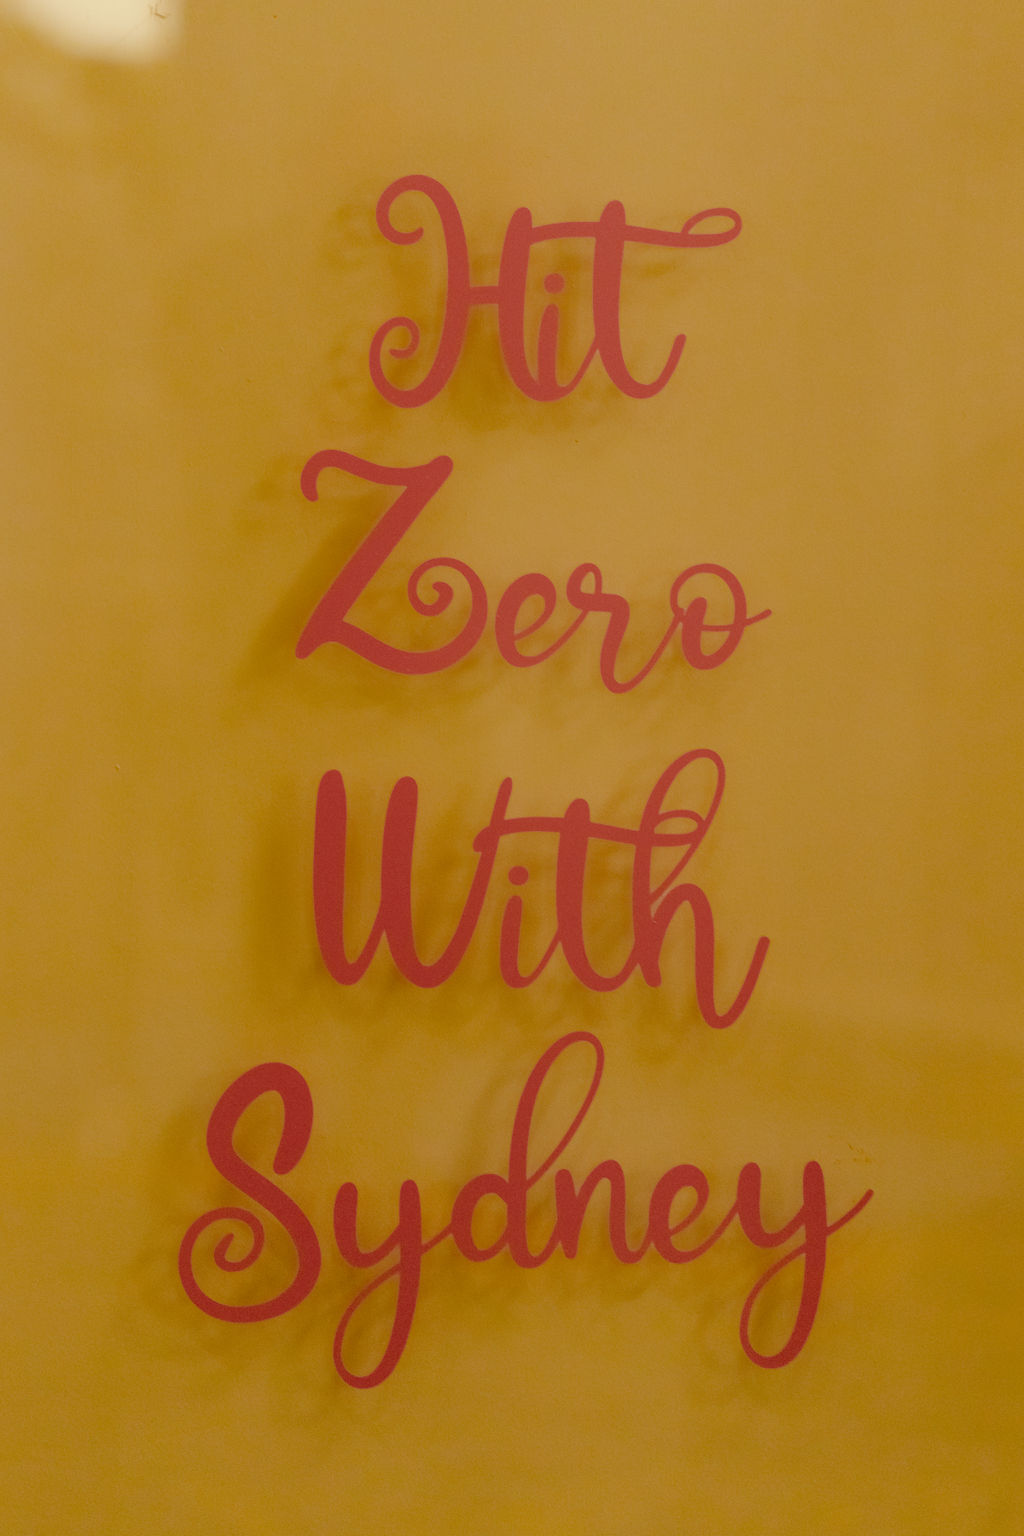 Hit
Zero
With
Sydney